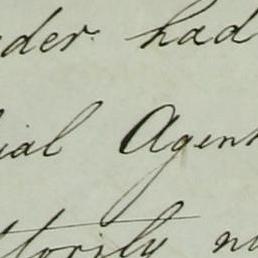 der had
ial Agen
torily